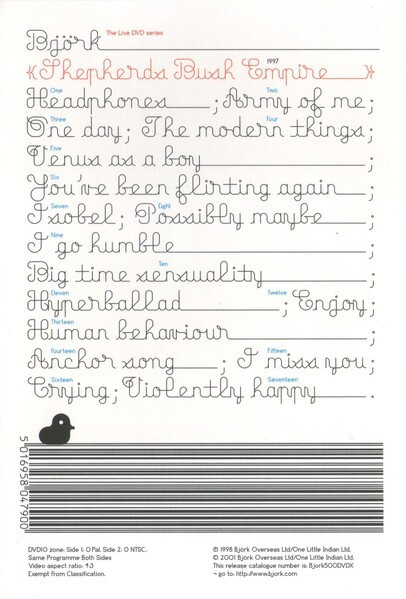 Björk The Live DVD series
1997
«Shepherds Bush Empire»
One Two
Headphones ; Army of me;
Three Four
One day; The modern things;
Five
Venus as a boy ;
Six
You've been flirting again ;
Seven Eight
Isobel; Possibly maybe ;
Nine
I go humble ;
Ten
Big time sensuality ;
Eleven Twelve
Hyperballad ; Enjoy;
Thirteen
Human behaviour ;
Fourteen Fifteen
Anchor song ; I miss you;
Sixteen Seventeen
Crying; Violently happy .
5016958047900
DVD10 zone: Side 1: 0 Pal. Side 2: 0 NTSC.
Same Programme Both Sides
Video aspect ratio: 4:3
Exempt from Classification.
℗ 1998 Björk Overseas Ltd/One Little Indian Ltd.
© 2001 Björk Overseas Ltd/One Little Indian Ltd.
This release catalogue number is: Bjork500DVDX
¬ go to: http://www.bjork.com